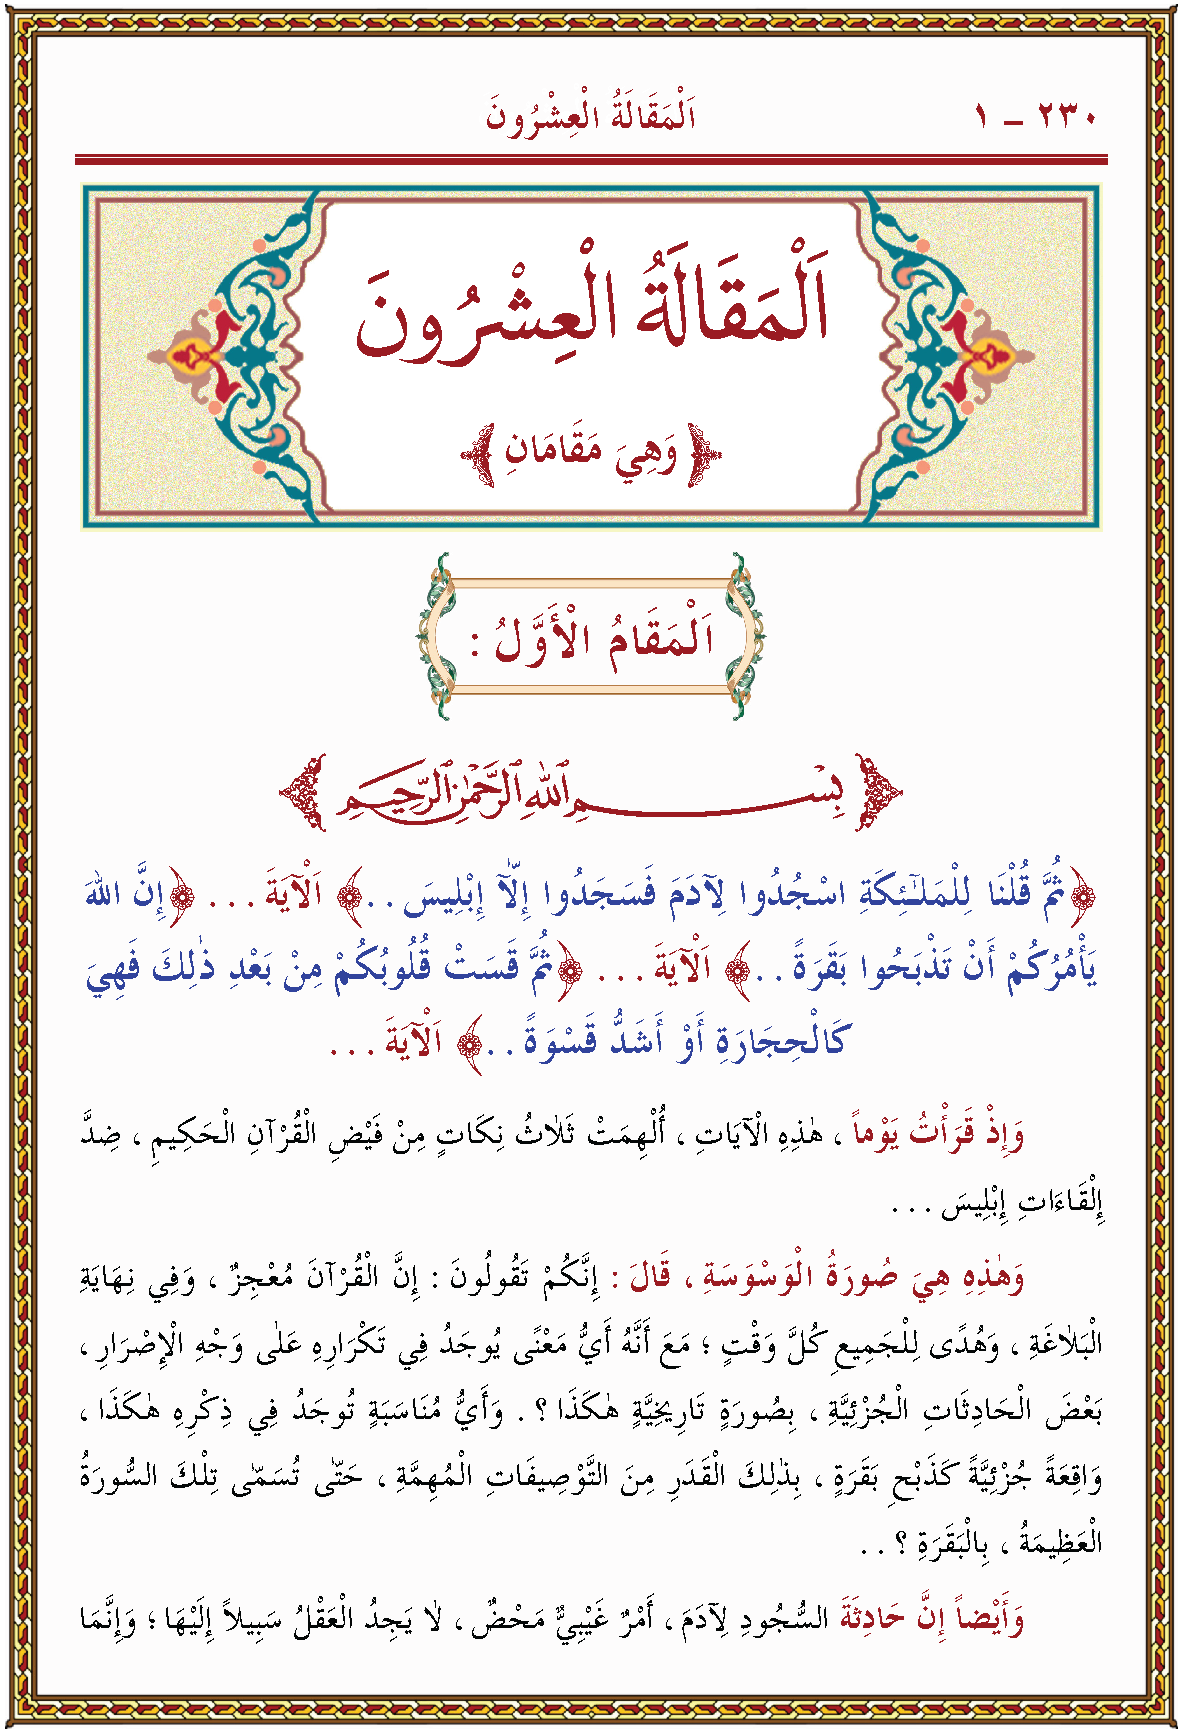 ٢٣٠ – ١ اَلْمَقَالَةُ الْعِشْرُونَ
اَلْمَقَالَةُ الْعِشْرُونَ
﴿ وَهِيَ مَقَامَانِ ﴾
اَلْمَقَامُ الْأَوَّلُ :
﴿ بِسْمِ اللهِ الرَّحْمٰنِ الرَّحِيمِ ﴾
﴿ثُمَّ قُلْنَا لِلْمَلٰٓئِكَةِ اسْجُدُوا لِآدَمَ فَسَجَدُوا إِلَّآ إِبْلِيسَ . .﴾ اَلْآيَةَ . . . ﴿إِنَّ اللهَ
يَأْمُرُكُمْ أَنْ تَذْبَحُوا بَقَرَةً . .﴾ اَلْآيَةَ . . . ﴿ثُمَّ قَسَتْ قُلُوبُكُمْ مِنْ بَعْدِ ذٰلِكَ فَهِيَ
كَالْحِجَارَةِ أَوْ أَشَدُّ قَسْوَةً . .﴾ اَلْآيَةَ . . .
وَإِذْ قَرَأْتُ يَوْماً ، هٰذِهِ الْآيَاتِ ، أُلْهِمَتْ ثَلَاثُ نِكَاتٍ مِنْ فَيْضِ الْقُرْآنِ الْحَكِيمِ ، ضِدَّ
إِلْقَاءَاتِ إِبْلِيسَ . . .
وَهٰذِهِ هِيَ صُورَةُ الْوَسْوَسَةِ ، قَالَ : إِنَّكُمْ تَقُولُونَ : إِنَّ الْقُرْآنَ مُعْجِزٌ ، وَفِي نِهَايَةِ
الْبَلَاغَةِ ، وَهُدًى لِلْجَمِيعِ كُلَّ وَقْتٍ ؛ مَعَ أَنَّهُ أَيُّ مَعْنًى يُوجَدُ فِي تَكْرَارِهِ عَلٰى وَجْهِ الْإِصْرَارِ ،
بَعْضَ الْحَادِثَاتِ الْجُزْئِيَّةِ ، بِصُورَةٍ تَارِيخِيَّةٍ هٰكَذَا ؟ . وَأَيُّ مُنَاسَبَةٍ تُوجَدُ فِي ذِكْرِهِ هٰكَذَا ،
وَاقِعَةً جُزْئِيَّةً كَذَبْحِ بَقَرَةٍ ، بِذٰلِكَ الْقَدَرِ مِنَ التَّوْصِيفَاتِ الْمُهِمَّةِ ، حَتّٰى تُسَمّٰى تِلْكَ السُّورَةُ
الْعَظِيمَةُ ، بِالْبَقَرَةِ ؟ . .
وَأَيْضاً إِنَّ حَادِثَةَ السُّجُودِ لِآدَمَ ، أَمْرٌ غَيْبِيٌّ مَحْضٌ ، لَا يَجِدُ الْعَقْلُ سَبِيلاً إِلَيْهَا ؛ وَإِنَّمَا